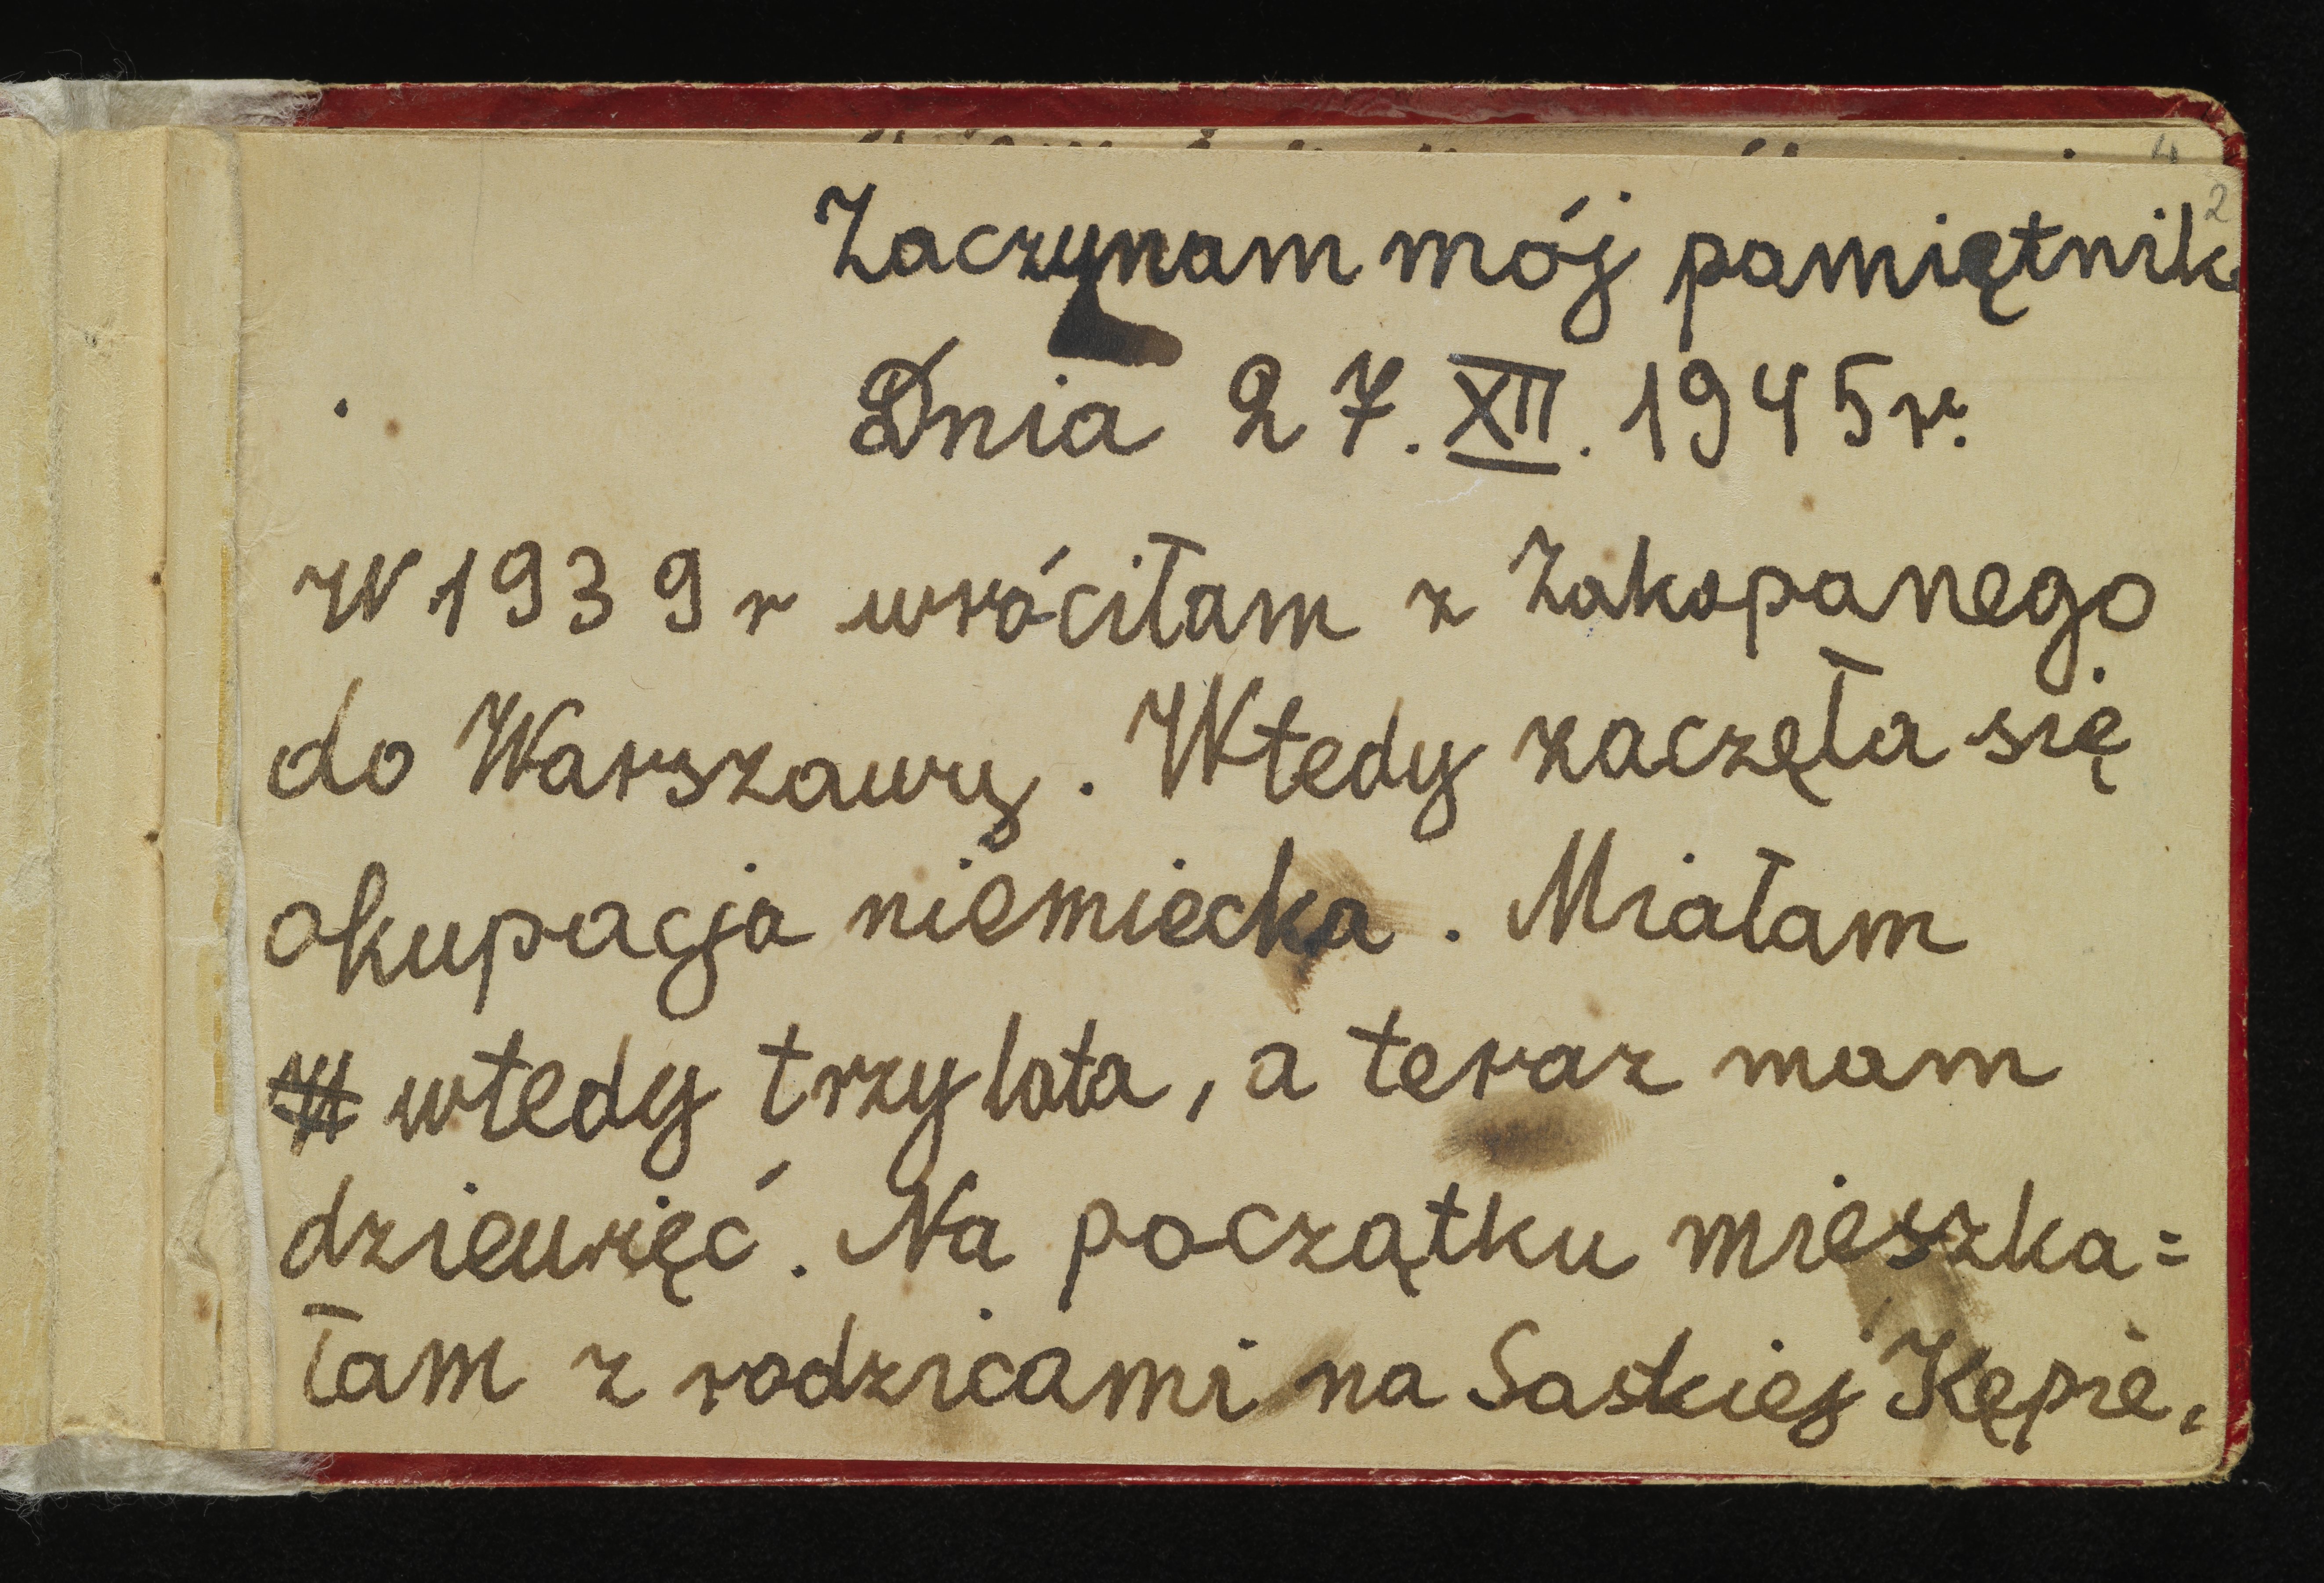 2
Zaczynam mój pamiętnik
Dnia 27. XII. 1945 r.
W 1939 r wróciłam z Zakopanego
do Warszawy. Wtedy zaczęła się
okupacja niemiecka. Miałam
wtedy trzy lata, a teraz mam
dziewięć. Na początku mieszka=
łam z rodzicami na Saskiej Kępie.